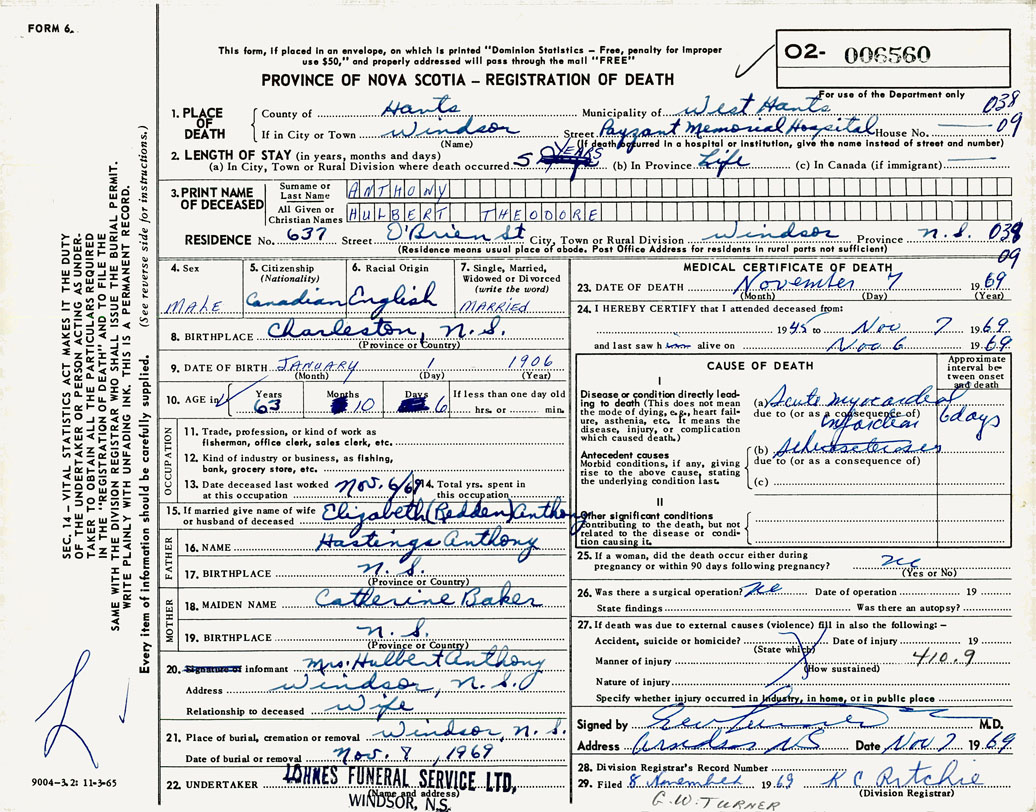 FORM 6.
This form, if placed in an envelope, on which is printed "Dominion Statistics – Free, penalty for improper
use $50," and properly addressed will pass through the mail "FREE"
PROVINCE OF NOVA SCOTIA – REGISTRATION OF DEATH
O2- 006560
For use of the Department only
1. PLACE OF DEATH County of Hants Municipality of West Hants 038
If in City or Town Windsor Street Payzant Memorial Hospital House No. 09
(Name) (If death occurred in a hospital or institution, give the name instead of street and number)
2. LENGTH OF STAY (in years, months and days)
(a) In City, Town or Rural Division where death occurred 50 YEARS (b) In Province Life (c) In Canada (if immigrant)
3. PRINT NAME OF DECEASED Surname or Last Name ANTHONY
All Given or Christian Names HULBERT THEODORE
RESIDENCE No. 637 Street O'Brien St City, Town or Rural Division Windsor Province N.S. 038
(Residence means usual place of abode. Post Office Address for residents in rural parts not sufficient) 09
4. Sex MALE
5. Citizenship (Nationality) Canadian
6. Racial Origin English
7. Single, Married, Widowed or Divorced (write the word) MARRIED
8. BIRTHPLACE Charleston, N.S.
(Province or Country)
9. DATE OF BIRTH JANUARY 1 1906
(Month) (Day) (Year)
10. AGE in Years 63 Months 10 Days 6 If less than one day old hrs. or min.
OCCUPATION
11. Trade, profession, or kind of work as
fisherman, office clerk, sales clerk, etc.
12. Kind of industry or business, as fishing,
bank, grocery store, etc.
13. Date deceased last worked at this occupation Nov. 6/69 14. Total yrs. spent in this occupation
15. If married give name of wife or husband of deceased Elizabeth (Redden) Anthony
FATHER
16. NAME Hastings Anthony
17. BIRTHPLACE N.S.
(Province or Country)
MOTHER
18. MAIDEN NAME Catherine Baker
19. BIRTHPLACE N.S.
(Province or Country)
20. Signature of informant Mrs. Hulbert Anthony
Address Windsor, N.S.
Relationship to deceased Wife
21. Place of burial, cremation or removal Windsor, N.S.
Date of burial or removal Nov. 8, 1969
22. UNDERTAKER LOHNES FUNERAL SERVICE LTD,
(Name and address)
WINDSOR, N.S.
MEDICAL CERTIFICATE OF DEATH
23. DATE OF DEATH November 7 1969
(Month) (Day) (Year)
24. I HEREBY CERTIFY that I attended deceased from:
1945 to Nov 7 1969
and last saw h alive on Nov 6 1969
CAUSE OF DEATH
Approximate interval between onset and death
I
Disease or condition directly leading to death (This does not mean the mode of dying, e.g., heart failure, asthenia, etc. It means the disease, injury, or complication which caused death.)
(a) Acute myocardial
due to (or as a consequence of)
infarction 6 days
Antecedent causes
Morbid conditions, if any, giving rise to the above cause, stating the underlying condition last.
(b)
due to (or as a consequence of)
(c)
II
Other significant conditions
contributing to the death, but not related to the disease or condition causing it.
25. If a woman, did the death occur either during
pregnancy or within 90 days following pregnancy? no
(Yes or No)
26. Was there a surgical operation? no Date of operation 19
State findings Was there an autopsy?
27. If death was due to external causes (violence) fill in also the following: –
Accident, suicide or homicide? Date of injury 19
(State which)
Manner of injury 410.9
(How sustained)
Nature of injury
Specify whether injury occurred in industry, in home, or in public place
Signed by M.D.
Address Windsor NS Date Nov 7 1969
28. Division Registrar's Record Number
29. Filed 8 November 1969 K C Ritchie
(Division Registrar)
G.W. TURNER
SEC. 14 – VITAL STATISTICS ACT MAKES IT THE DUTY
OF THE UNDERTAKER OR PERSON ACTING AS UNDER-
TAKER TO OBTAIN ALL THE PARTICULARS REQUIRED
IN THE "REGISTRATION OF DEATH" AND TO FILE THE
SAME WITH THE DIVISION REGISTRAR WHO SHALL ISSUE THE BURIAL PERMIT.
WRITE PLAINLY WITH UNFADING INK. THIS IS A PERMANENT RECORD.
Every item of information should be carefully supplied. (See reverse side for instructions.)
9004-3.2: 11-3-65